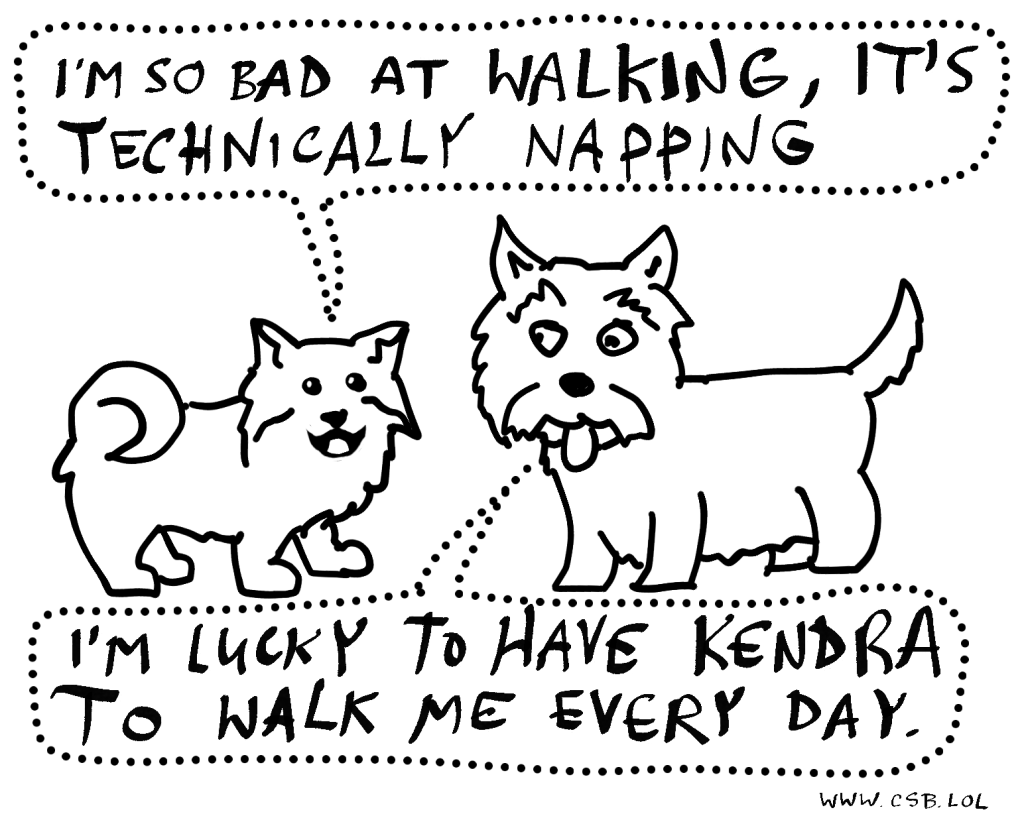 I'M SO BAD AT WALKING, IT'S
TECHNICALLY NAPPING
I'M LUCKY TO HAVE KENDRA
TO WALK ME EVERY DAY.
WWW.CSB.LOL